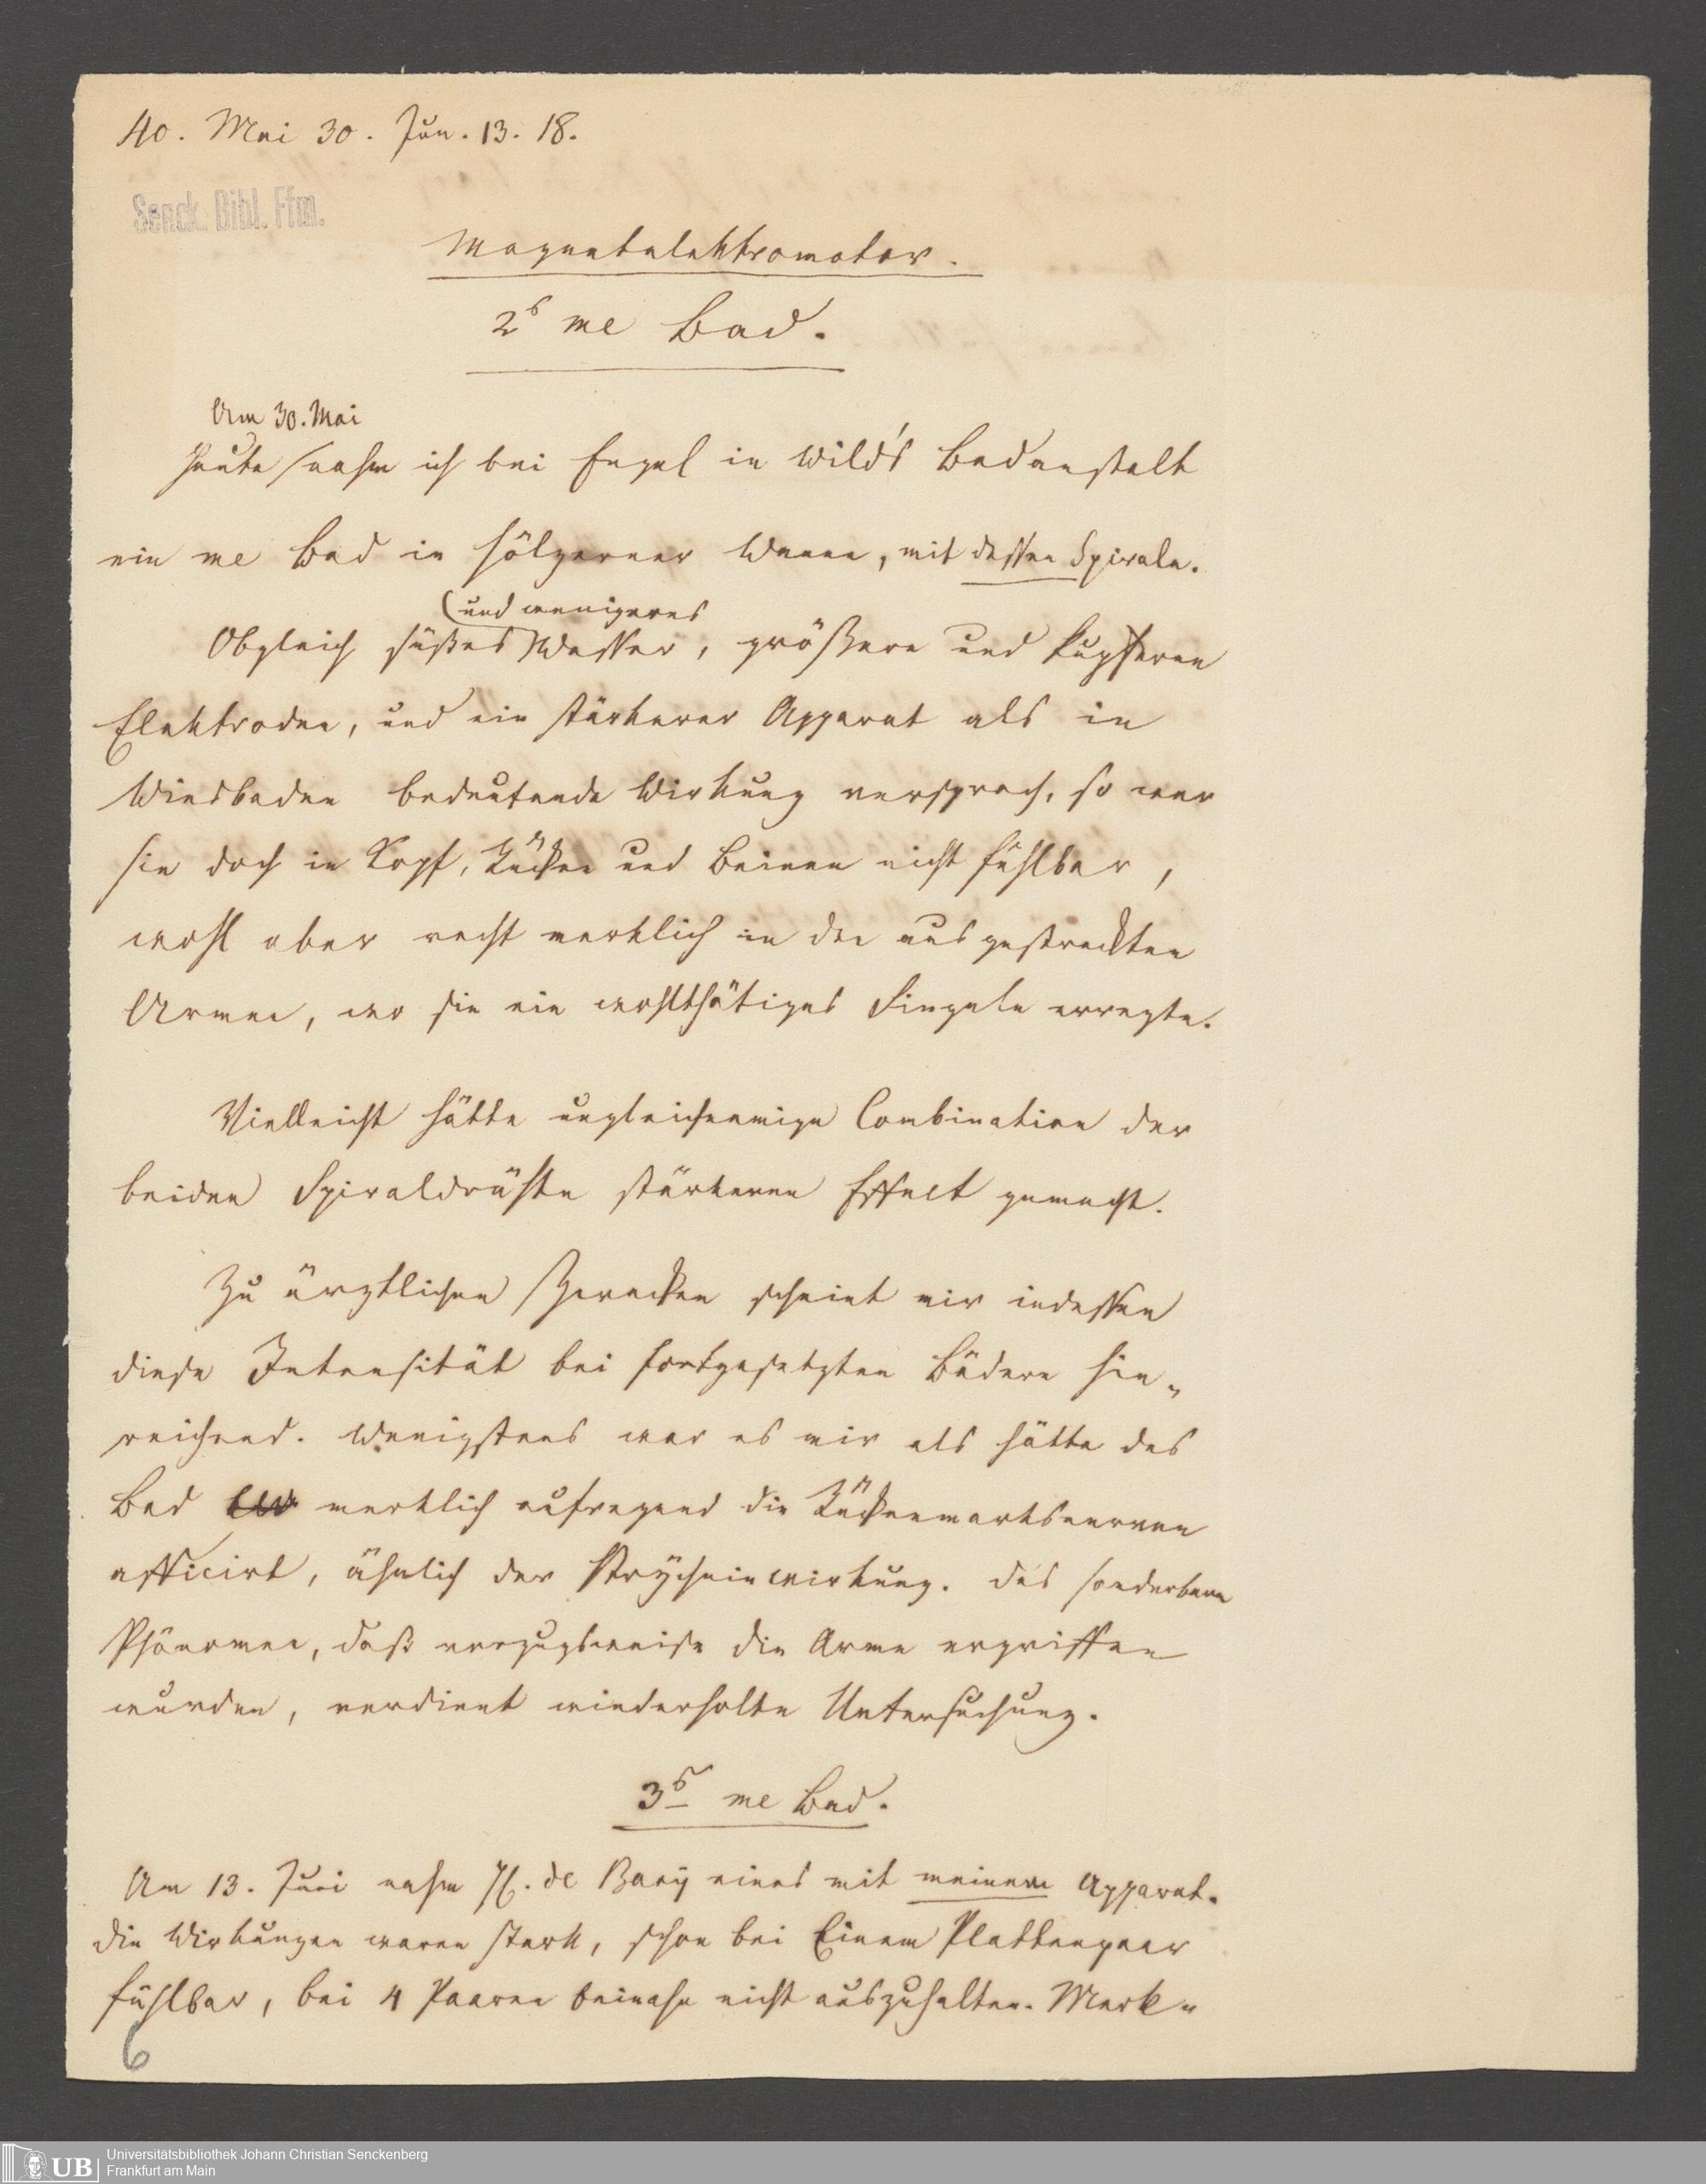 40. Mai 30. Jun. 13. 18.
Senck. Bibl. Ffm.
Magnetelektromotor.
2s me Bad.
Am 30. Mai
Heute nahm ich bei Engel in Wild's Badanstalt
ein me Bad in hölzerner Wanne, mit dessen Spirale.
und wenigeres
Obgleich süßes Wasser, größere und kupferne
Elektroden, und ein stärkerer Apparat als in
Wiesbaden bedeutende Wirkung versprach, so war
sie doch in Kopf, Rücken und Beinen nicht fühlbar,
wohl aber recht merklich in den ausgestreckten
Armen, wo sie ein wohlthätiges Singeln erregte.
Vielleicht hätte ungleichnamige Combination der
beiden Spiraldräthe stärkeren Effect gemacht.
Zu ärztlichen Zwecken scheint mir indessen
diese Intensität bei fortgesetzten Bädern hin-
reichend. Wenigstens war es mir als hätte das
Bad merklich aufregend die Rückenmarksnerven
afficirt, ähnlich der Strychninwirkung. Das sonderbare
Phänomen, daß vorzugsweise die Arme ergriffen
wurden, verdient wiederholte Untersuchung.
3s me Bad.
Am 13. Juni nahm H. de Bary eines mit meinem Apparat.
Die Wirkungen waren stark, schon bei Einem Plattenpaar
fühlbar, bei 4 Paaren beinahe nicht auszuhalten. Merk-
6
UB
Universitätsbibliothek Johann Christian Senckenberg
Frankfurt am Main